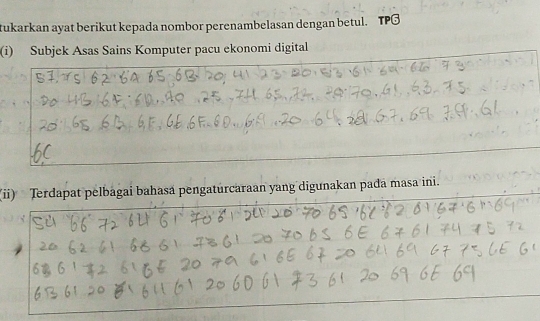 tukarkan ayat berikut kepada nombor perenambelasan dengan betul. TP3
(i) Subjek Asas Sains Komputer pacu ekonomi digital
53, 75 62 6A 65 6B 20, 41 73 20 53 61 69 6E 73
20 4B 6F 6D 70 75 74 65 72 20 70, 61, 63, 75
20 65 6B 6F 6E 6F 6D 69 20 64 69 67 69 74 61
6C
(ii) Terdapat pelbagai bahasa pengaturcaraan yang digunakan pada masa ini.
54 66 72 64 61 70 61 74 20 70 65 6C 62 61 67 61 69
20 62 61 68 61 73 61 20 70 65 6E 67 61 74 75 72
63 61 72 61 6E 20 79 61 6E 67 20 64 69 67 75 6E 61
6B 61 20 61 64 61 20 6D 61 73 61 20 69 6E 69